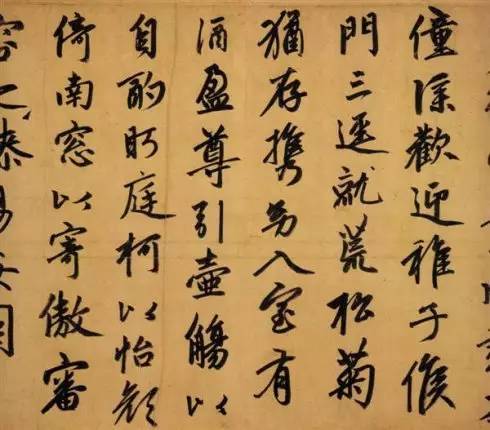 僮僕歡迎稚子候
門三逕就荒松菊
猶存携幼入室有
酒盈尊引壺觴以
自酌眄庭柯以怡顔
倚南窓以寄傲審
容易安